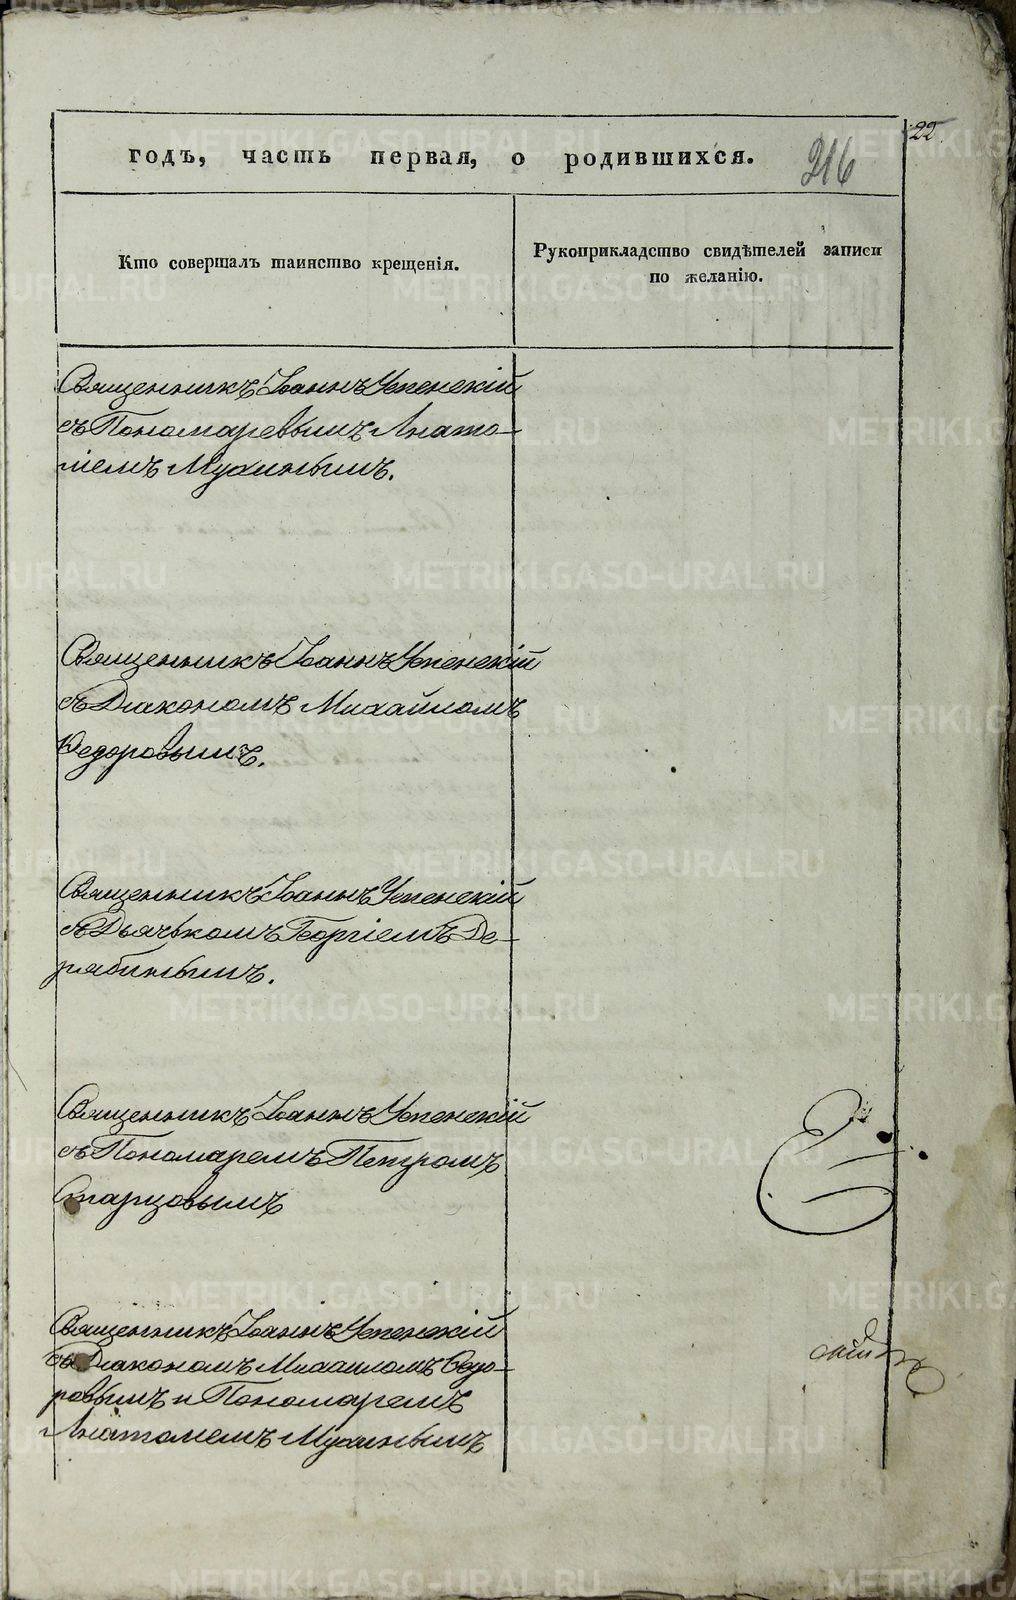 22
годъ, часть первая, о родившихся.
216
Кто совершалъ таинство крещенія.
Рукоприкладство свидѣтелей записи
по желанію.
Священникъ Іоаннъ Успенскій
съ Пономаревымъ Анато-
ліемъ Мухинымъ.
Священникъ Іоаннъ Успенскій
съ Діакономъ Михаиломъ
Федоровымъ.
Священникъ Іоаннъ Успенскій
съ Дьячькомъ Георгіемъ Де-
рябинымъ.
Священникъ Іоаннъ Успенскій
съ Пономаремъ Петромъ
Старцовымъ
Священникъ Іоаннъ Успенскій
съ Діакономъ Михаиломъ Ѳедо-
ровымъ и Пономаремъ
Анатолиемъ Мухинымъ
METRIKI.GASO-URAL.RU